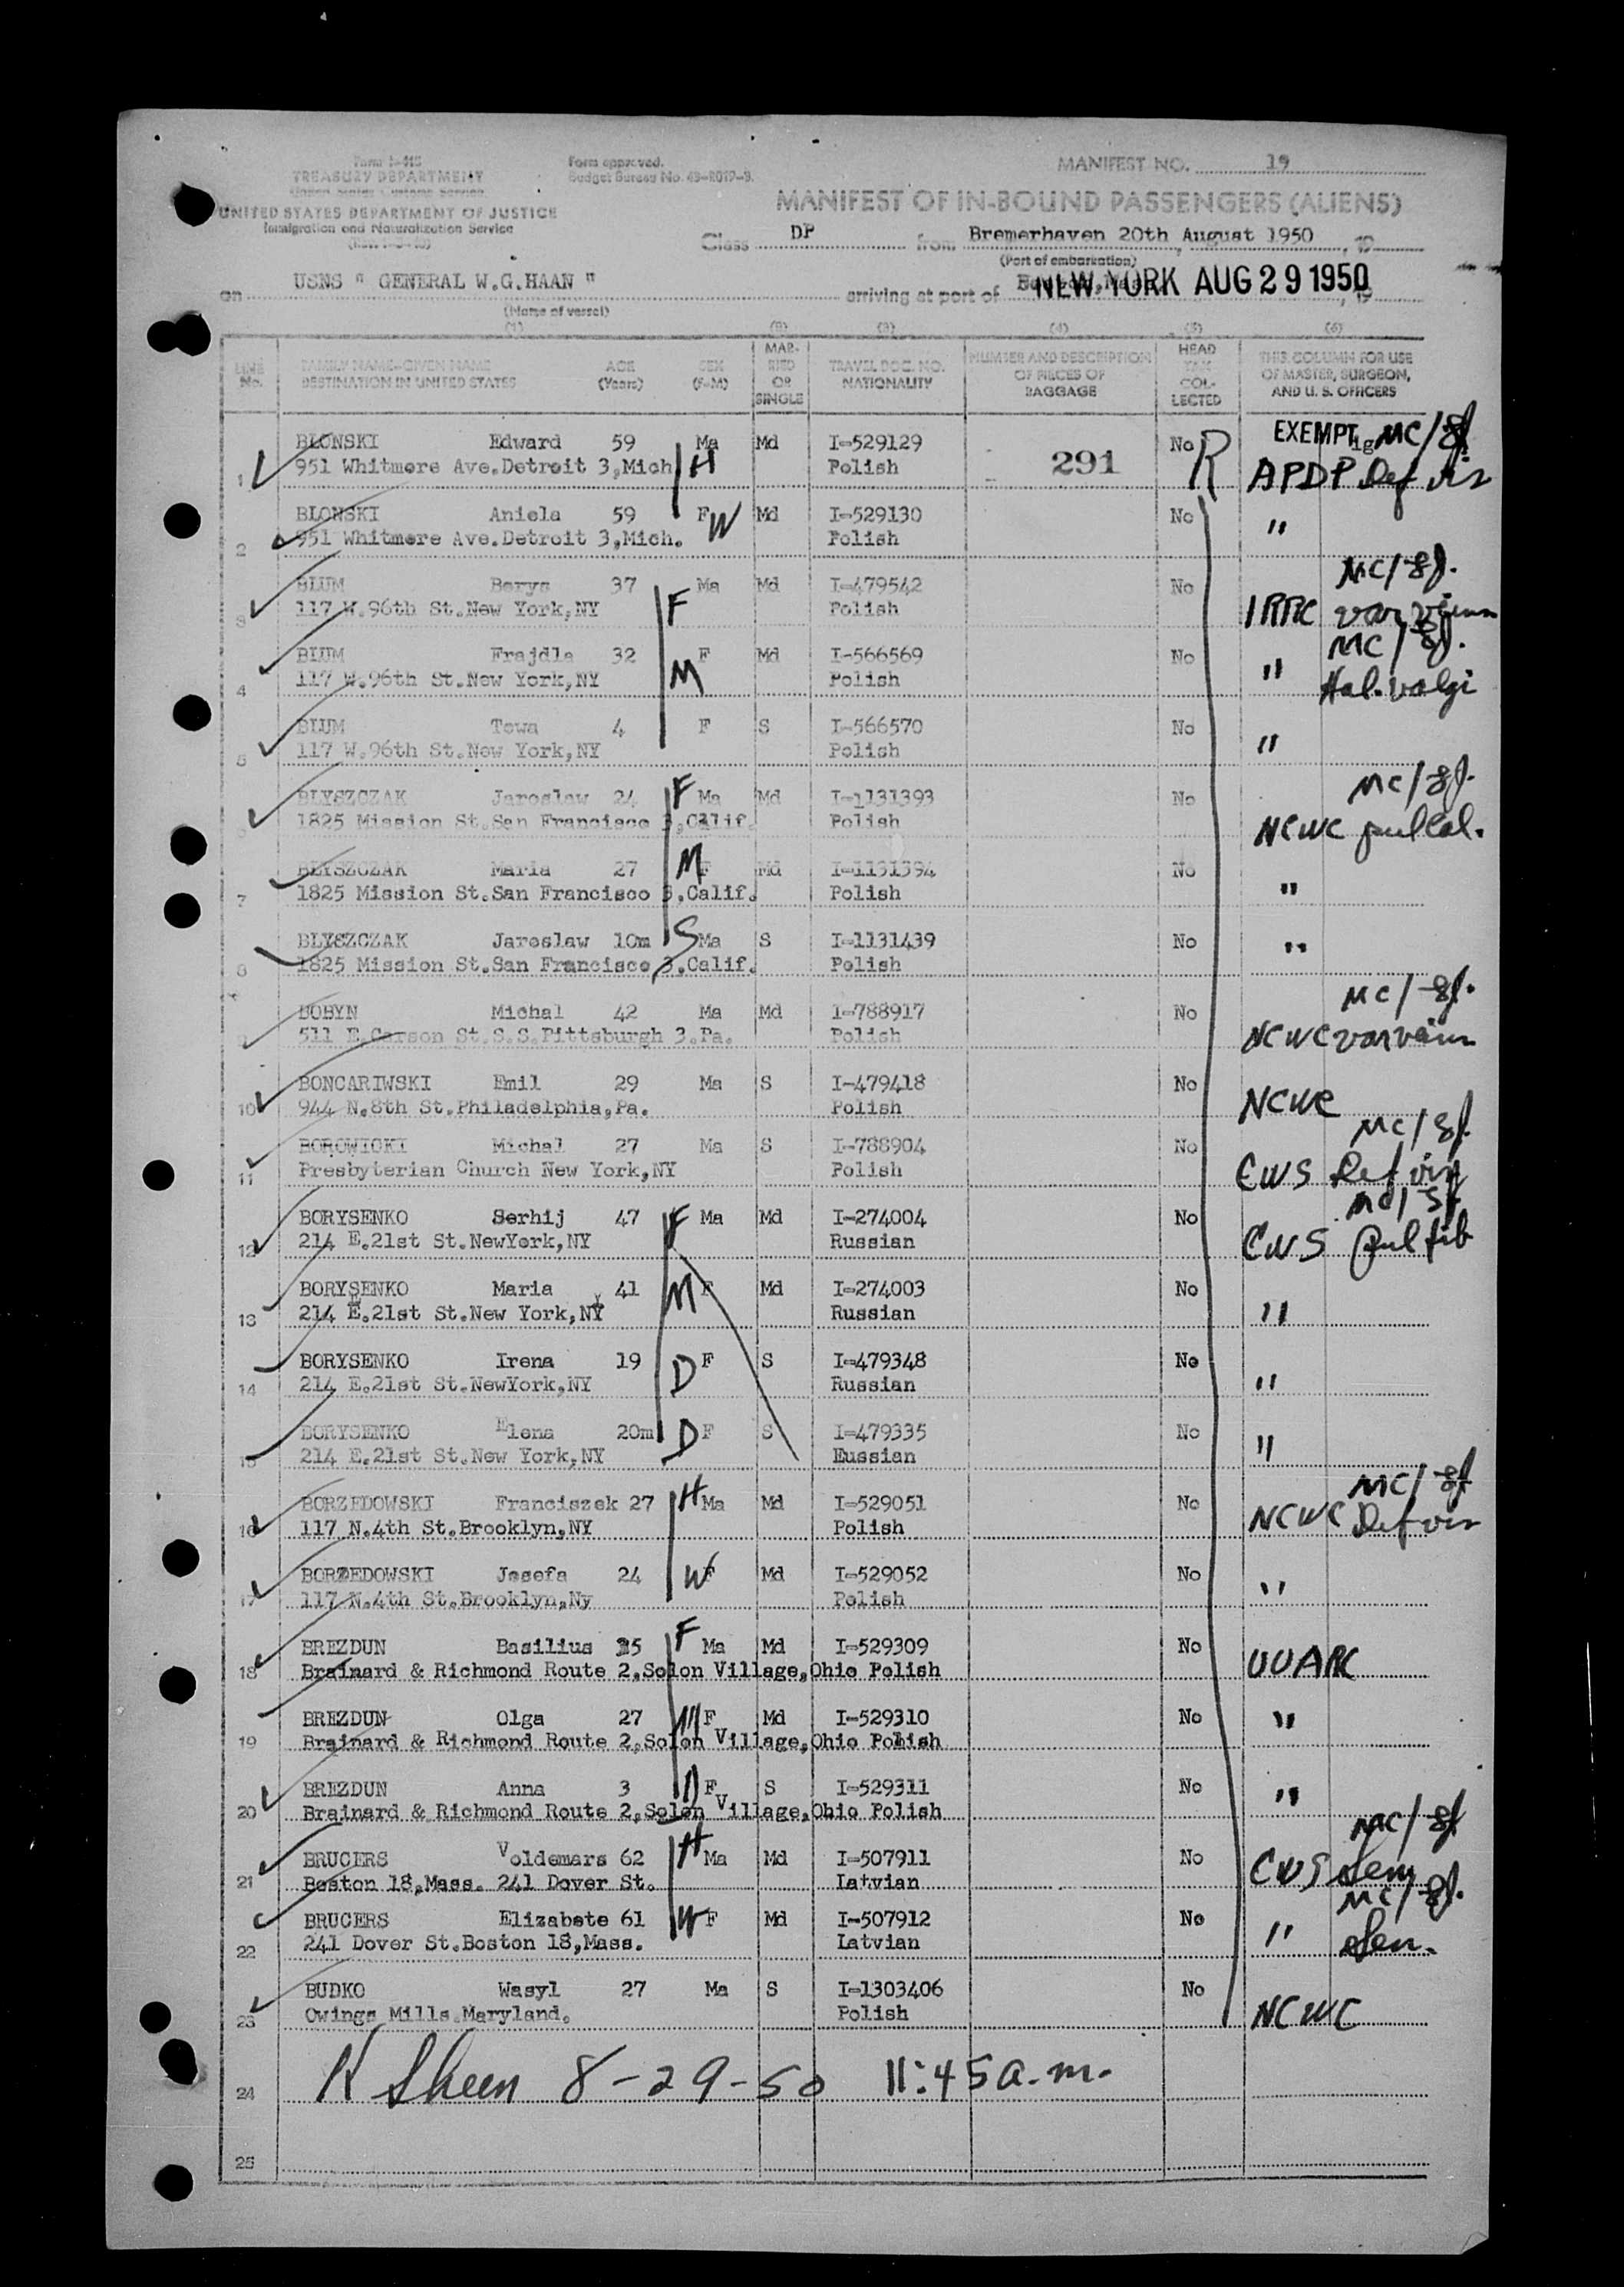 Form I-415
TREASURY DEPARTMENT
United States Customs Service
UNITED STATES DEPARTMENT OF JUSTICE
Immigration and Naturalization Service
Form approved.
Budget Bureau No. 43-R019-3.
MANIFEST NO. 19
MANIFEST OF IN-BOUND PASSENGERS (ALIENS)
Class DP from Bremerhaven 20th August 1950, 19
(Port of embarkation)
on USNS " GENERAL W.G.HAAN " arriving at port of NEW YORK AUG 29 1950, 19
(Name of vessel)
(1) (2) (3) (4) (5) (6)
LINE No. FAMILY NAME-GIVEN NAME DESTINATION IN UNITED STATES AGE (Years) SEX (F-M) MARRIED OR SINGLE TRAVEL DOC. NO. NATIONALITY NUMBER AND DESCRIPTION OF PIECES OF BAGGAGE HEAD TAX COLLECTED THIS COLUMN FOR USE OF MASTER, SURGEON, AND U. S. OFFICERS
BLONSKI Edward 59 Ma Md I-529129 No R EXEMPT MC/
1 951 Whitmore Ave.Detroit 3,Mich H Polish 291 APDP Def vis
BLONSKI Aniela 59 F W Md I-529130 No "
2 951 Whitmore Ave.Detroit 3,Mich. Polish
BLUM Borys 37 Ma Md I-479542 No MC/
3 117 W.96th St.New York,NY F Polish
BLUM Frajdla 32 F Md I-566569 No " MC/
4 117 W.96th St.New York,NY M Polish Hal.valgi
BLUM Towa 4 F S I-566570 No "
5 117 W.96th St.New York,NY Polish
BLYSZCZAK Jaroslaw 24 F Ma Md I-1131393 No MC/
6 1825 Mission St.San Francisco 3,Calif. Polish NCWC pulcal.
BLYSZCZAK Maria 27 M F Md I-1131394 No "
7 1825 Mission St.San Francisco 3.Calif. Polish
BLYSZCZAK Jaroslaw 10m S Ma S I-1131439 No "
8 1825 Mission St.San Francisco 3.Calif. Polish
BOBYN Michal 42 Ma Md I-788917 No MC/
9 511 E.Carson St.S.S.Pittsburgh 3.Pa. Polish NCWC
BONCARIWSKI Emil 29 Ma S I-479418 No
10 944 N.8th St.Philadelphia,Pa. Polish NCWC
BOROWICKI Michal 27 Ma S I-788904 No MC/
11 Presbyterian Church New York,NY Polish CWS Def vis
BORYSENKO Serhij 47 F Ma Md I-274004 No MC/
12 214 E.21st St.NewYork,NY Russian CWS pul fib
BORYSENKO Maria 41 M F Md I-274003 No
13 214 E.21st St.New York,NY Russian "
BORYSENKO Irena 19 D F S I-479348 No
14 214 E.21st St.NewYork,NY Russian "
BORYSENKO Elena 20m D F S I-479335 No
15 214 E.21st St.New York,NY Eussian "
BORZEDOWSKI Franciszek 27 H Ma Md I-529051 No MC/
16 117 N.4th St.Brooklyn,NY Polish NCWC Def vis
BORZEDOWSKI Josefa 24 W F Md I-529052 No
17 117 N.4th St.Brooklyn,Ny Polish "
BREZDUN Basilius 35 F Ma Md I-529309 No
18 Brainard & Richmond Route 2,Solon Village,Ohio Polish UUARC
BREZDUN Olga 27 M F Md I-529310 No "
19 Brainard & Richmond Route 2,Solon Village,Ohio Polish
BREZDUN Anna 3 D F S I-529311 No "
20 Brainard & Richmond Route 2,Solon Village,Ohio Polish
BRUCERS Voldemars 62 H Ma Md I-507911 No MC/
21 Boston 18,Mass. 241 Dover St. Latvian CWS Sen
BRUCERS Elizabete 61 W F Md I-507912 No MC/
22 241 Dover St.Boston 18,Mass. Latvian " Sen.
BUDKO Wasyl 27 Ma S I-1303406 No
23 Owings Mills.Maryland. Polish NCWC
24 H Sheen 8-29-50 11:45 a.m.
25